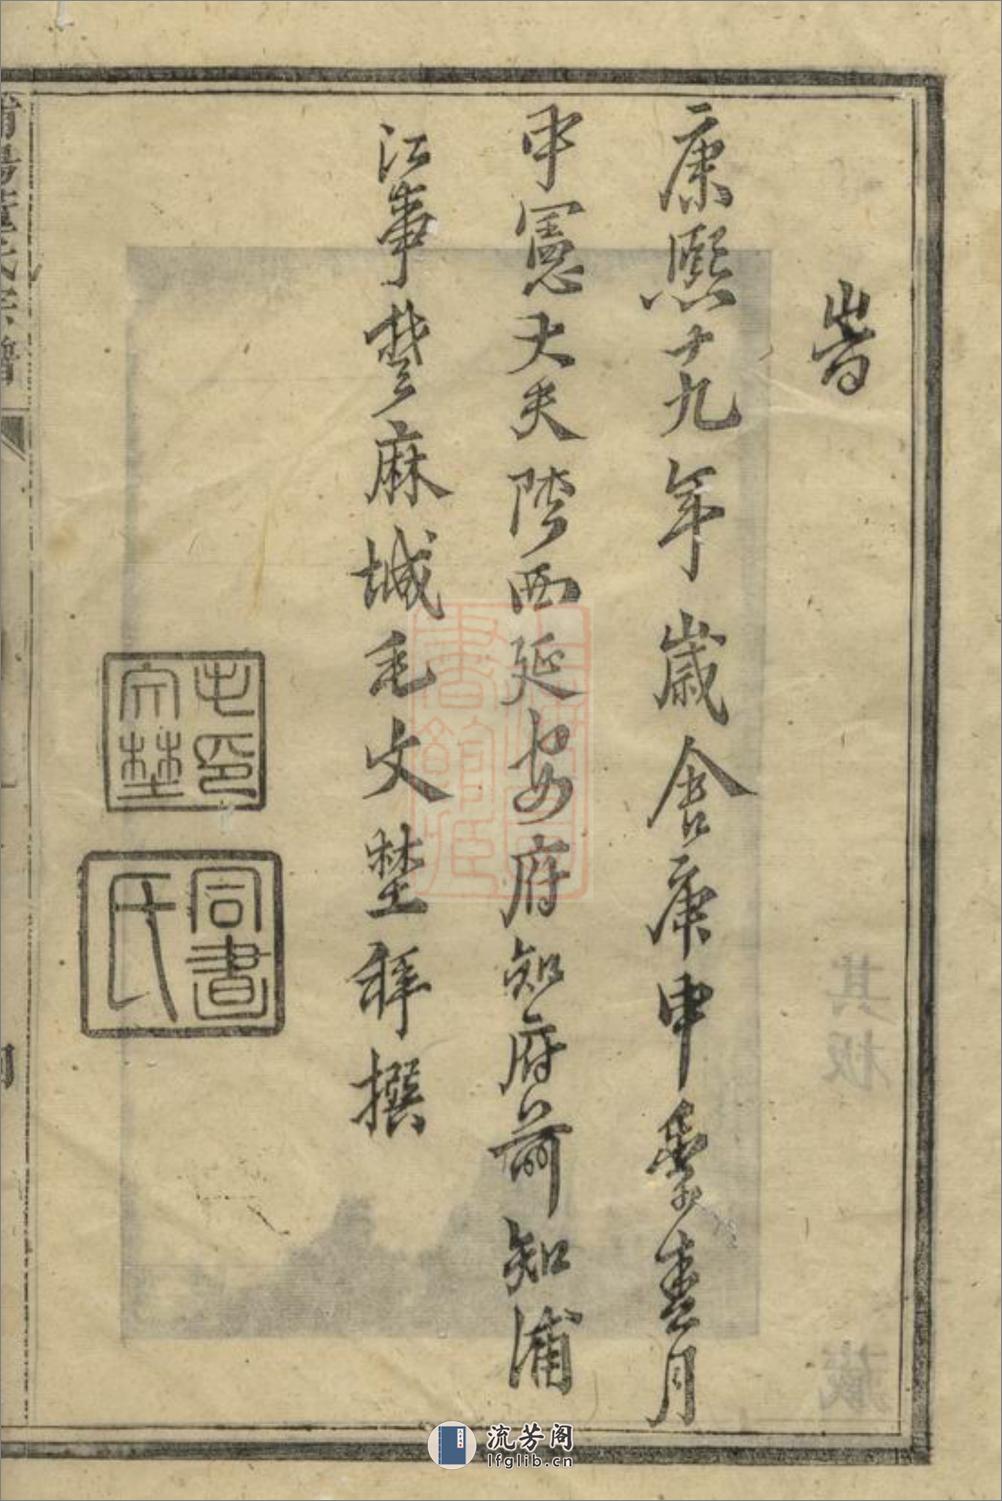 旹
康熙十九年歲舍庚申季春月
中憲大夫陝西延安府知府前知浦
江事楚麻城毛文埜拜撰
毛印文埜
同書氏
氏宗譜
流芳阁
lfglib.cn